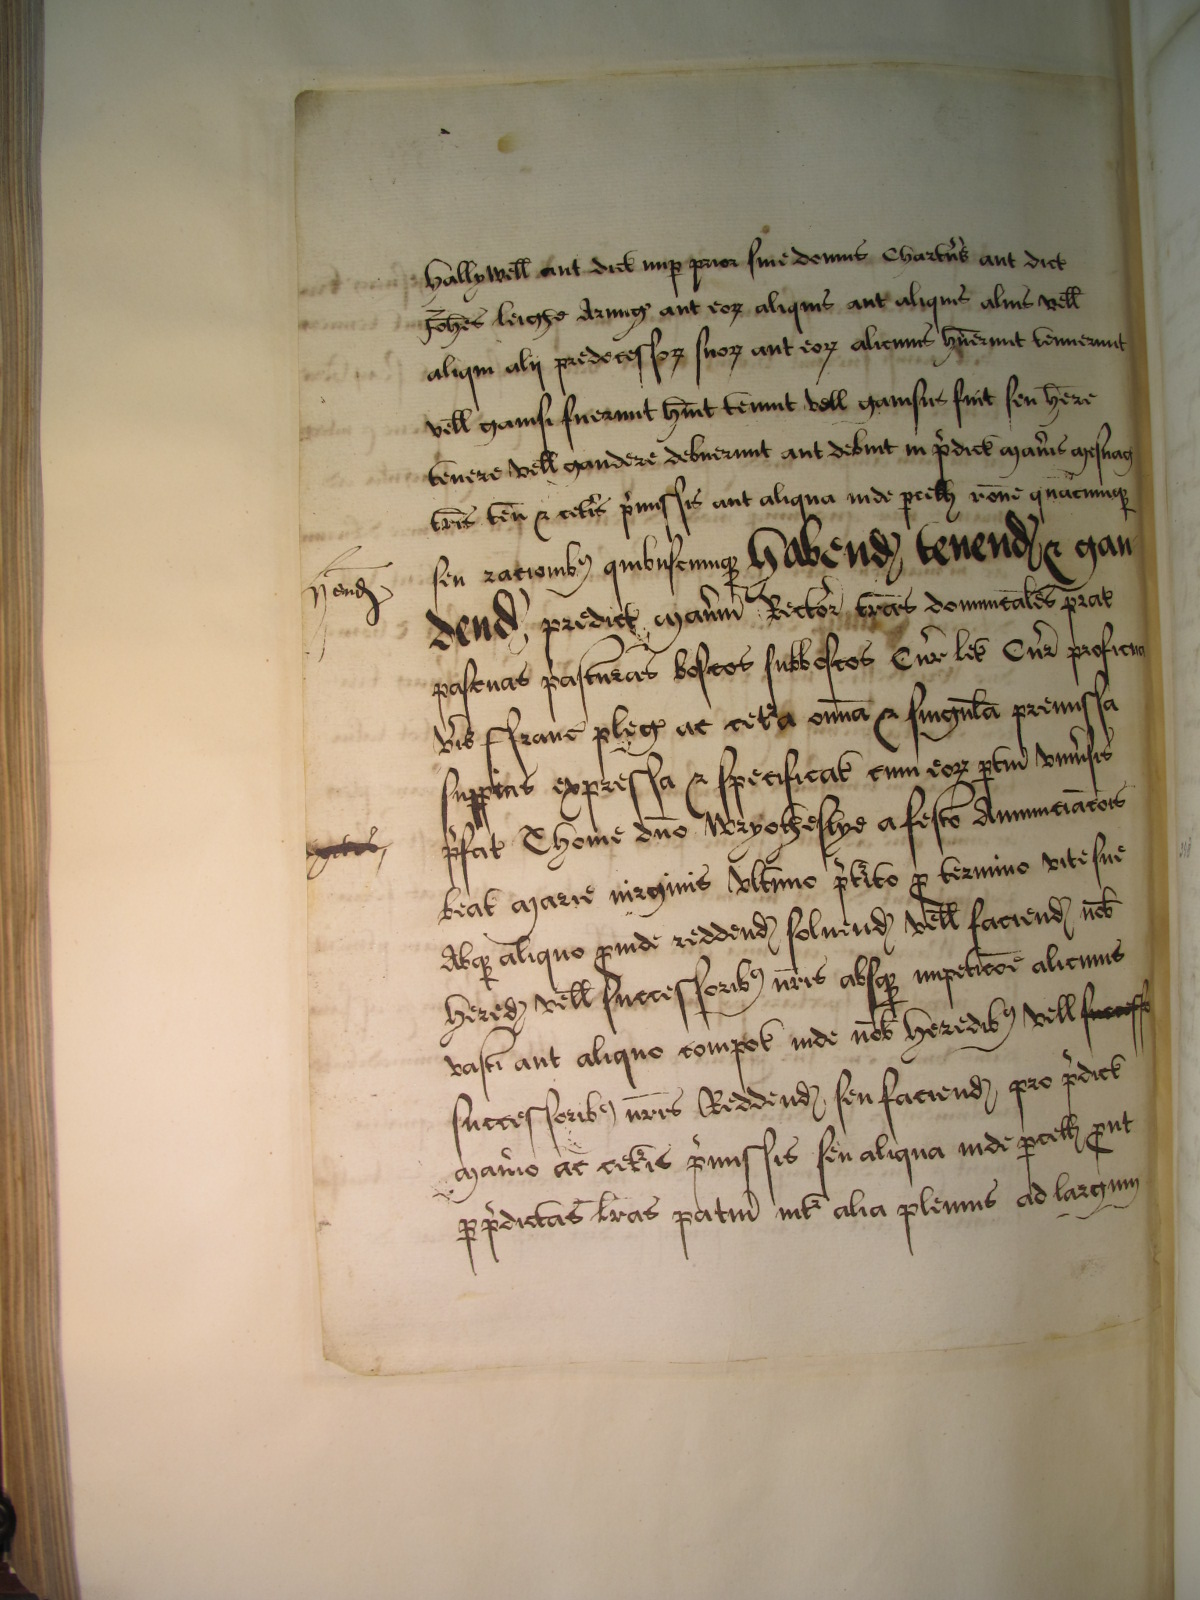 Hallywell aut dict nup prior sive domus Chartus aut dict
Johes leighe Armig aut eoz aliquis aut aliquis alius vell
aliqui alij predecessoz suoz aut eoz alicuius huerunt tenuerunt
vell gavisi fuerunt hunt tenunt vell gavisus fuit seu here
tenere vell gaudere debuerunt aut debuit in pdict manis mesuag
tris ten & cetis pmissis aut aliqua inde pcell rone quacumq
seu racionib quibuscumq Habend tenend & gau
Hend
dend predict manm Rector tras dominicales prat
pascuas pasturas boscos subboscos Cur let Cur proficua
vis ffranc pleg ac cetra omia & singula premissa
supius expressa & specificat cum eoz ptin univsis
pfat Thome dno Wryothesley a festo Annunciacois
beat marie virginis ultimo ptito p termino vite sue
Absq aliquo pinde reddend solvend vell faciend nob
hered vell successorib nris absq impeticoe alicuius
vasti aut aliquo compot inde nob heredib vell successo
successorib nris Reddend seu faciend pro pdict
manio ac cetis pmissis seu aliqua inde pcell put
p pdictas lras paten int alia plenius ad largum